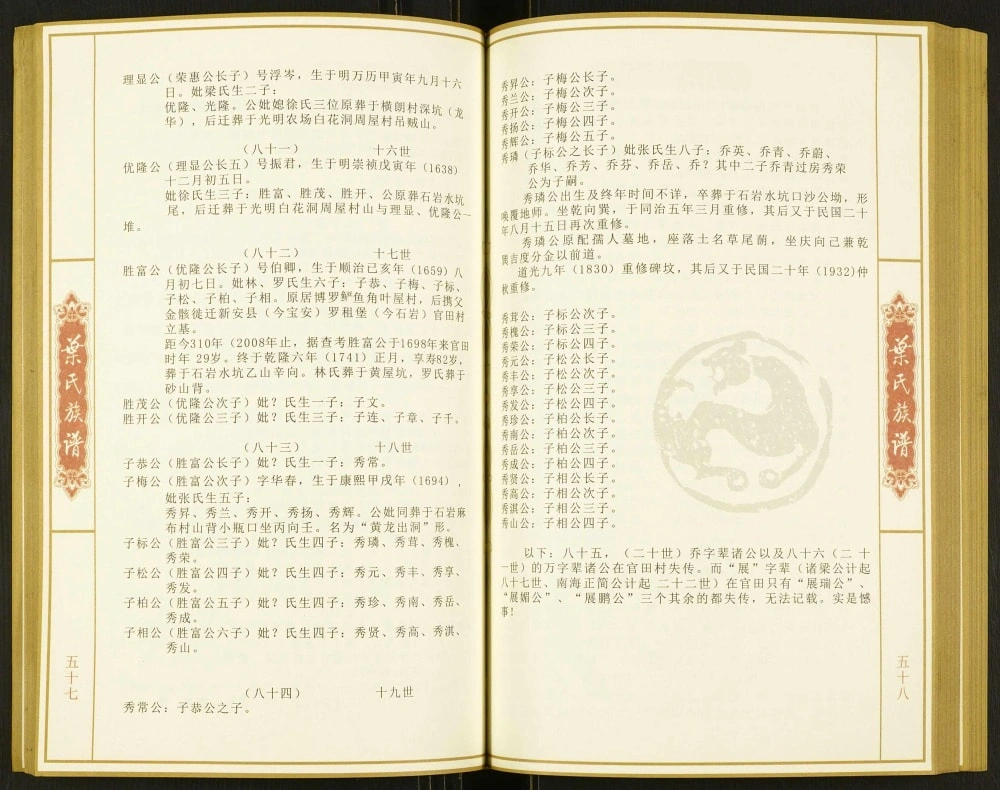 理显公（荣惠公长子）号浮岑，生于明万历甲寅年九月十六
日。妣梁氏生二子：
优隆、光隆。公妣媳徐氏三位原葬于横朗村深坑（龙
华），后迁葬于光明农场白花洞周屋村吊贼山。
（八十一） 十六世
优隆公（理显公长五）号振君，生于明崇祯戊寅年（1638）
十二月初五日。
妣徐氏生三子：胜富、胜茂、胜开、公原葬石岩水坑
尾，后迁葬于光明白花洞周屋村山与理显、优隆公一
堆。
（八十二） 十七世
胜富公（优隆公长子）号伯卿，生于顺治己亥年（1659）八
月初七日。妣林、罗氏生六子：子恭、子梅、子标、
子松、子柏、子相。原居博罗鲥鱼角叶屋村，后携父
金骸徙迁新安县（今宝安）罗租堡（今石岩）官田村
立基。
距今310年（2008年止，据查考胜富公于1698年来官田
时年 29岁。终于乾隆六年（1741）正月，享寿82岁，
葬于石岩水坑乙山辛向。林氏葬于黄屋坑，罗氏葬于
砂山背。
胜茂公（优隆公次子）妣？氏生一子：子文。
胜开公（优隆公三子）妣？氏生三子：子连、子章、子千。
（八十三） 十八世
子恭公（胜富公长子）妣？氏生一子：秀常。
子梅公（胜富公次子）字华春，生于康熙甲戌年（1694），
妣张氏生五子：
秀昇、秀兰、秀开、秀扬、秀辉。公妣同葬于石岩麻
布村山背小瓶口坐丙向壬。名为“黄龙出洞”形。
子标公（胜富公三子）妣？氏生四子：秀璘、秀茸、秀槐、
秀荣。
子松公（胜富公四子）妣？氏生四子：秀元、秀丰、秀享、
秀发。
子柏公（胜富公五子）妣？氏生四子：秀珍、秀南、秀岳、
秀成。
子相公（胜富公六子）妣？氏生四子：秀贤、秀高、秀淇、
秀山。
（八十四） 十九世
秀常公：子恭公之子。
葉氏族谱
五十七
秀昇公：子梅公长子。
秀兰公：子梅公次子。
秀开公：子梅公三子。
秀扬公：子梅公四子。
秀辉公：子梅公五子。
秀璘（子标公之长子）妣张氏生八子：乔英、乔青、乔蔚、
乔华、乔芳、乔芬、乔岳、乔？其中二子乔青过房秀荣
公为子嗣。
秀璘公出生及终年时间不详，卒葬于石岩水坑口沙公坳，形
唤覆地师。坐乾向巽，于同治五年三月重修，其后又于民国二十
年八月十五日再次重修。
秀璘公原配孺人墓地，座落土名草尾蓢，坐庆向己兼乾
巽吉度分金以前道。
道光九年（1830）重修碑坟，其后又于民国二十年（1932)仲
秋重修。
秀茸公：子标公次子。
秀槐公：子标公三子。
秀荣公：子标公四子。
秀元公：子松公长子。
秀丰公：子松公次子。
秀享公：子松公三子。
秀发公：子松公四子。
秀珍公：子柏公长子。
秀南公：子柏公次子。
秀岳公：子柏公三子。
秀成公：子柏公四子。
秀贤公：子相公长子。
秀高公：子相公次子。
秀淇公：子相公三子。
秀山公：子相公四子。
以下：八十五，（二十世）乔字辈诸公以及八十六（二 十
一世）的万字辈诸公在官田村失传。而“展”字辈（诸梁公计起
八十七世、南海正简公计起 二十二世）在官田只有“展瑞公”、
“展媚公”、“展鹏公”三个其余的都失传，无法记载。实是憾
事！
葉氏族谱
五十八